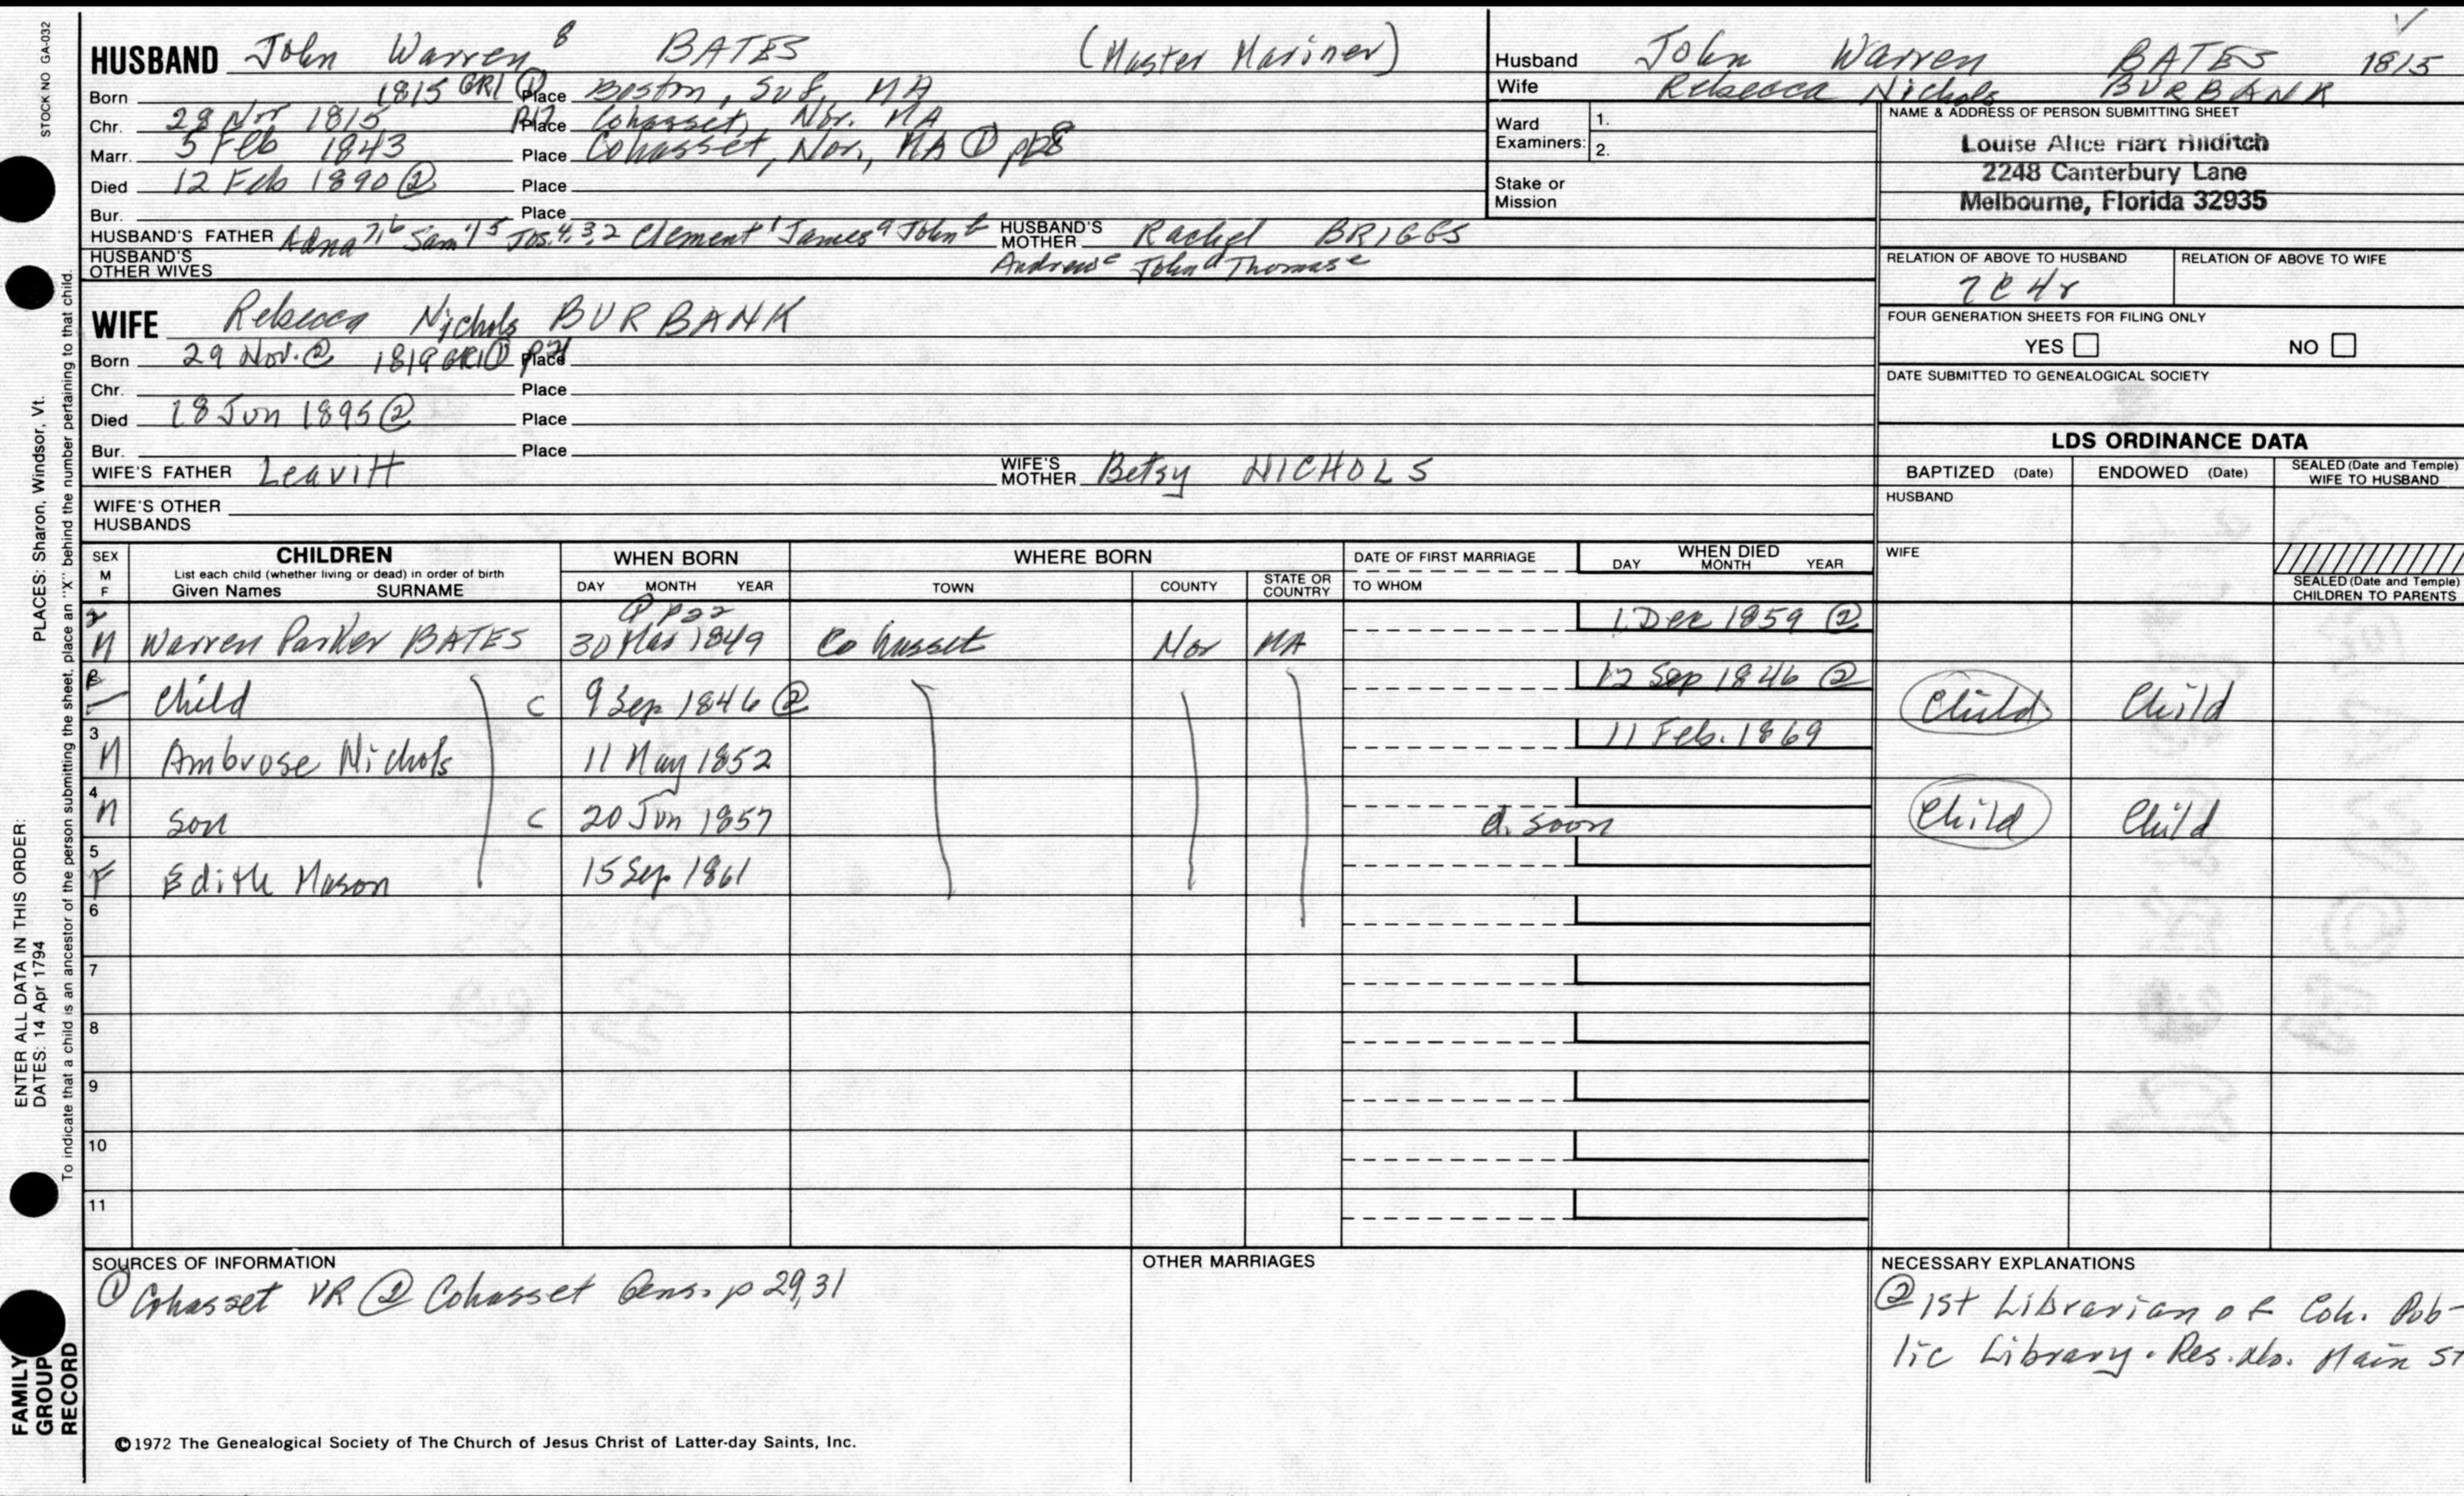 STOCK NO GA-032
HUSBAND John Warren 8 BATES (Master Mariner)
Born 1815 GR1 ① Place Boston, Suf, MA
Chr. 28 Nov 1815 P17 Place Cohasset, Nor. MA
Marr. 5 Feb 1843 Place Cohasset, Nor., MA ①
Died 12 Feb 1890 ② Place
Bur. Place
HUSBAND'S FATHER Adna 7, 6 Sam'l 5 Jos. 4, 3, 2 Clement 1 James a John b HUSBAND'S MOTHER Rachel BRIGGS
HUSBAND'S OTHER WIVES
Andrew c John d Thomas e
WIFE Rebecca Nichols BURBANK
Born 29 Nov. ② 1819 GR1 ① Place
Chr. Place
Died 18 Jun 1895 ② Place
Bur. Place
WIFE'S FATHER Leavitt WIFE'S MOTHER Betsy NICHOLS
WIFE'S OTHER HUSBANDS
Husband John Warren BATES 1815
Wife Rebecca Nichols BURBANK
Ward Examiners: 1.
2.
Stake or Mission
NAME & ADDRESS OF PERSON SUBMITTING SHEET
Louise Alice Hart Hilditch
2248 Canterbury Lane
Melbourne, Florida 32935
RELATION OF ABOVE TO HUSBAND RELATION OF ABOVE TO WIFE
7C4r
FOUR GENERATION SHEETS FOR FILING ONLY
YES NO
DATE SUBMITTED TO GENEALOGICAL SOCIETY
LDS ORDINANCE DATA
BAPTIZED (Date) ENDOWED (Date) SEALED (Date and Temple) WIFE TO HUSBAND
HUSBAND
WIFE
SEALED (Date and Temple) CHILDREN TO PARENTS
SEX M F CHILDREN WHEN BORN WHERE BORN DATE OF FIRST MARRIAGE WHEN DIED
List each child (whether living or dead) in order of birth
Given Names SURNAME DAY MONTH YEAR TOWN COUNTY STATE OR COUNTRY TO WHOM DAY MONTH YEAR
① p22
2 M Warren Parker BATES 30 Mar 1849 Cohasset Nor MA 1 Dec 1859 ②
Child C 9 Sep 1846 ② 12 Sep 1846 ② Child Child
3 M Ambrose Nichols 11 May 1852 11 Feb. 1869
4 M Son C 20 Jun 1857 d. soon Child Child
5 F Edith Mason 15 Sep 1861
6
7
8
9
10
11
SOURCES OF INFORMATION
① Cohasset VR ② Cohasset Gens. p 29, 31
OTHER MARRIAGES
NECESSARY EXPLANATIONS
② 1st Librarian of Coh. Pub-
lic Library. Res. No. Main St
©1972 The Genealogical Society of The Church of Jesus Christ of Latter-day Saints, Inc.
FAMILY GROUP RECORD
ENTER ALL DATA IN THIS ORDER:
DATES: 14 Apr 1794
PLACES: Sharon, Windsor, Vt.
To indicate that a child is an ancestor of the person submitting the sheet, place an "X" behind the number pertaining to that child.